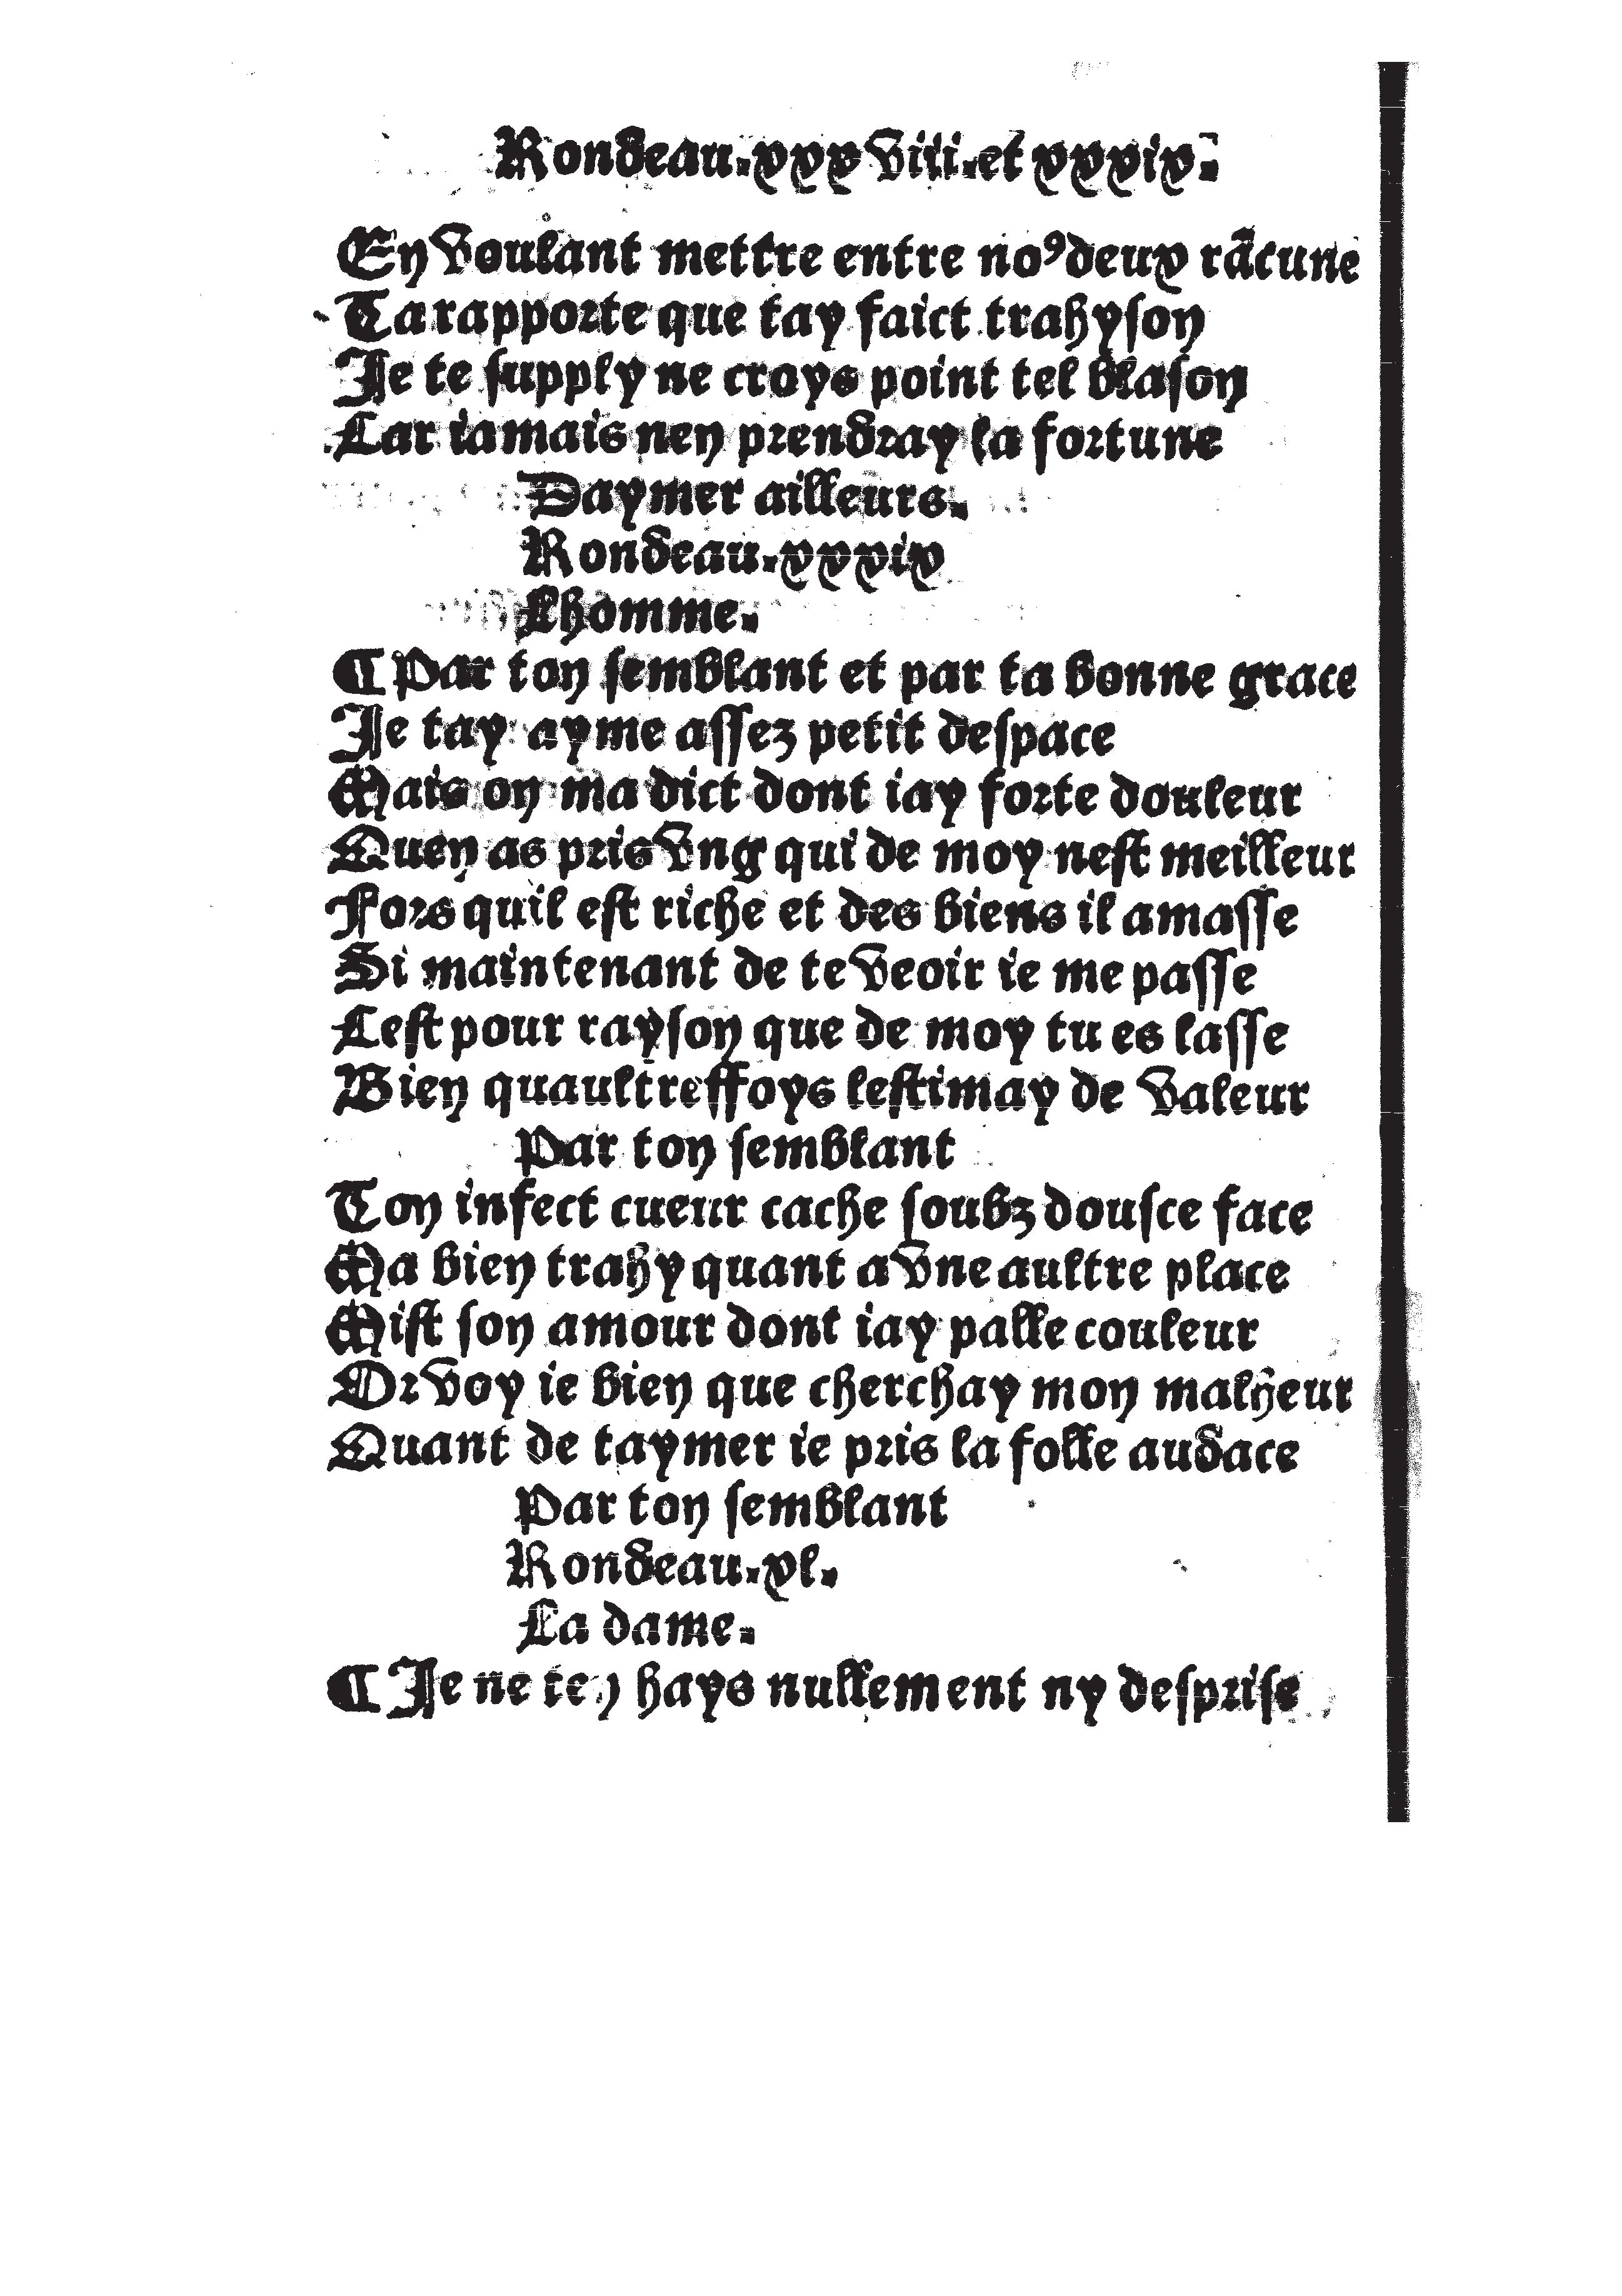 Rondeau.xxxviii.et xxxix.
En voulant mettre entre noꝰ deux rãcune
Ta rapporte que tay faict trahyson
Je te supply ne croys point tel blason
Car iamais nen prendray la fortune
Daymer ailleurs.
Rondeau.xxxix
Lhomme.
¶ Par ton semblant et par ta bonne grace
Je tay ayme assez petit despace
Mais on ma dict dont iay forte douleur
Quen as pris vng qui de moy nest meilleur
Fors quil est riche et des biens il amasse
Si maintenant de te veoir ie me passe
Cest pour rayson que de moy tu es lasse
Bien quaultreffoys lestimay de valeur
Par ton semblant
Ton infect cueur cache soubz dousce face
Ma bien trahy quant a vne aultre place
Mist son amour dont iay palle couleur
Or voy ie bien que cherchay mon malheur
Quant de taymer ie pris la folle audace
Par ton semblant
Rondeau.xl.
La dame.
¶ Je ne ten hays nullement ny desprise